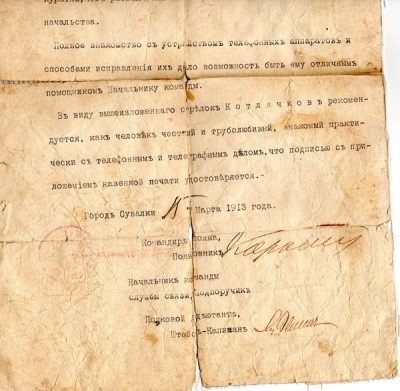 начальства.
Полное знакомство съ устройствомъ телефонныхъ аппаратовъ и
способами исправленія ихъ дало возможность быть ему отличнымъ
помощникомъ Начальнику команды.
Въ виду вышеизложеннаго стрѣлокъ Котлячковъ рекомен-
дуется, какъ человѣкъ честный и трудолюбивый, знакомый практи-
чески съ телефоннымъ и телеграфнымъ дѣломъ, что подписью съ при-
ложеніемъ казенной печати удостовѣряется.-
Городъ Сувалки 15 Марта 1913 года.
Командиръ полка,
Полковникъ
Начальникъ команды
службы связи, Подпоручикъ
Полковой Адъютантъ,
Штабсъ-Капитанъ